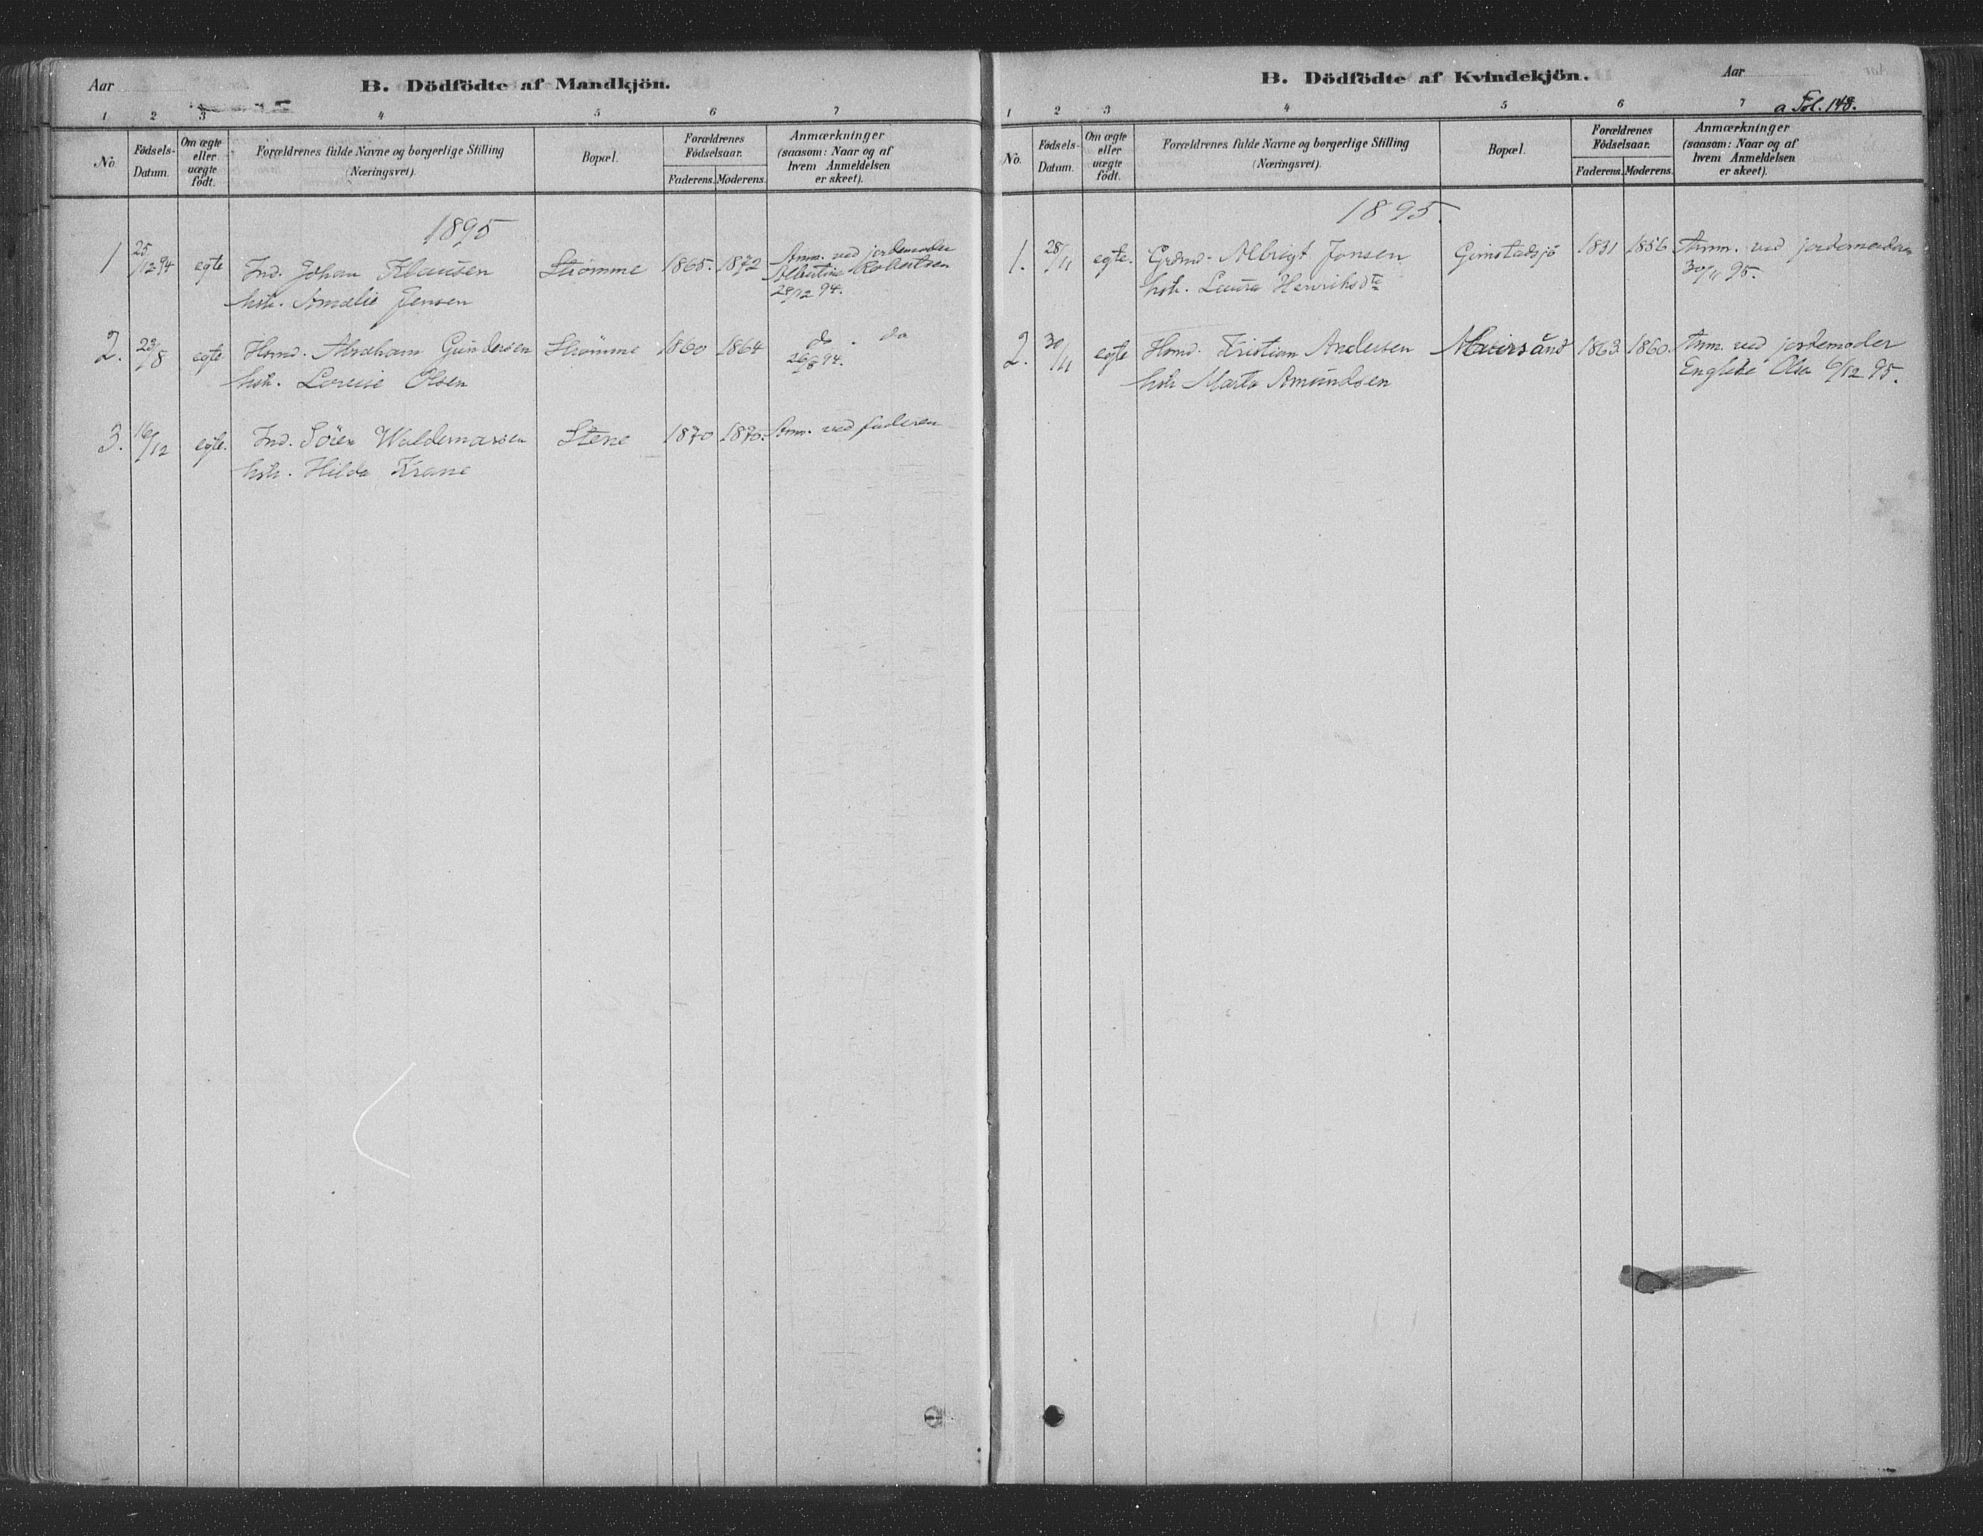 Aar
B. Dödfödte af Mandkjön.
1 2 3 4 5 6 7
No. Födsels-Datum. Om ægte eller uægte födt. Forældrenes fulde Navne og borgerlige Stilling (Næringsvei). Bopæl. Forældrenes Födselsaar. Faderens. Moderens. Anmærkninger (saasom: Naar og af hvem Anmeldelsen er skeet).
1895
1 25/12 94 egte Ind. Johan Klausen Strømme 1865. 1872 Anm. ved jordemoder
hstr. Amalie Jensen Albertine Robertsen
28/12 94.
2. 23/8 egte Hsmd. Abraham Gundersen Strømme 1860 1864 do . do
hstr. Lovise Olsen 26/8 94.
3. 16/12 egte. Ind. Sören Waldemarsen Stene 1870 1870. Anm. ved faderen
hstr. Hilda Krane
B. Dödfödte af Kvindekjön.
Aar
a Fol. 148.
1 2 3 4 5 6 7
No. Födsels-Datum. Om ægte eller uægte födt. Forældrenes fulde Navne og borgerlige Stilling (Næringsvei). Bopæl. Forældrenes Födselsaar. Faderens. Moderens. Anmærkninger (saasom: Naar og af hvem Anmeldelsen er skeet).
1895.
1. 28/11 egte. Grdmd. Albrigt Jonsen Gimstadsjö 1831 1856 Anm. ved jordemoderen
hstr. Laura Henriksdtr 30/11 95.
2. 30/11 egte Hsmd. Kristian Andersen 1863 1860. Anm. ved jordemoder
hstr Marta Amundsen Olsen 6/12 95.